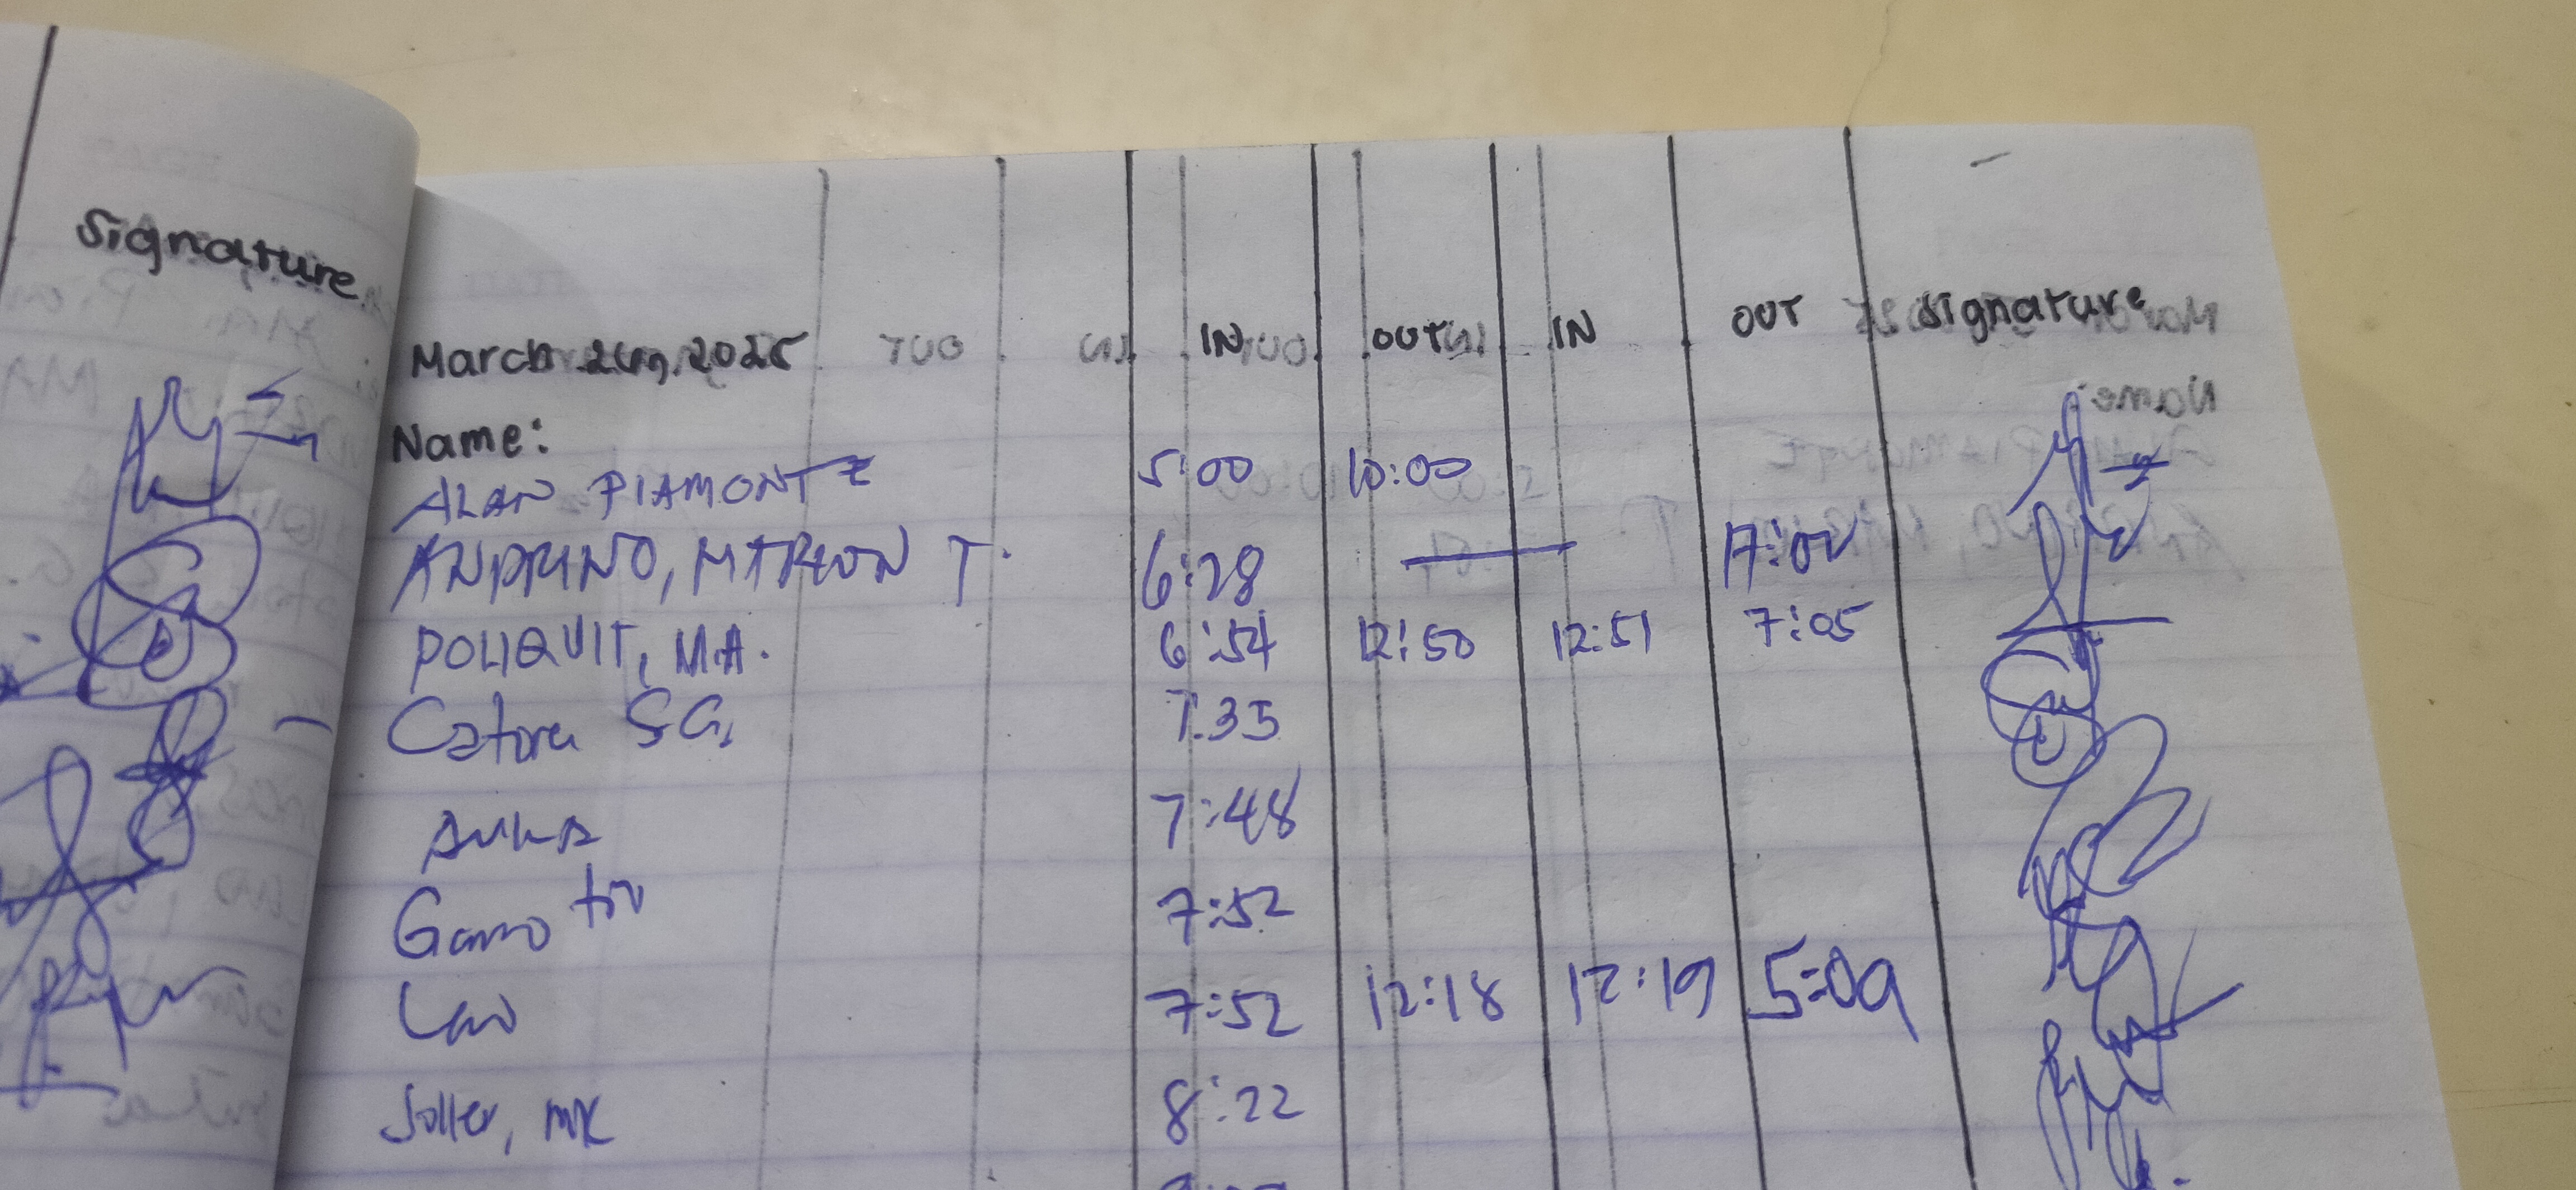 Signature
March 2025 IN OUT IN OUT Signature
Name:
ALAN PIAMONTE 5:00 10:00
ANDRINO, MARLON T. 6:28 — 17:00
POLIQUIT, M.A. 6:54 12:50 12:51 7:05
SG. 7:35
7:48
7:52
Lao 7:52 12:18 12:19 5:09
Soller, MK 8:22